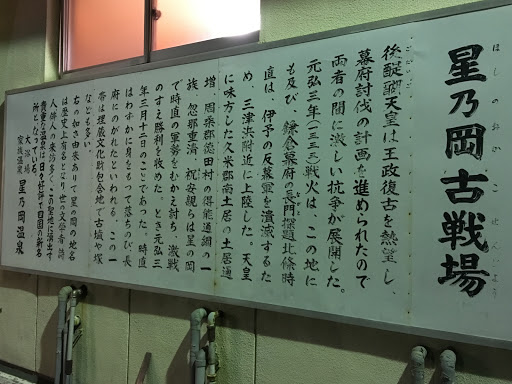 星乃岡古戦場
ほしのおかこせんじょう
後醍醐天皇は王政復古を熱望し、
幕府討伐の計画を進められたので
両者の間に激しい抗争が展開した。
元弘三年(一三三三)戦火は、この地に
も及び、鎌倉幕府の長門探題北條時
直は、伊予の反幕軍を潰滅するた
め、三津浜附近に上陸した。天皇
に味方した久米郡南土居の土居通
増、周桑郡徳田村の得能通綱の一
族、忽那重清、祝安親らは星の岡
で時直の軍勢をむかえ討ち、激戦
のすえ勝利を收めた。とき元弘三
年三月十二日のことであった。時直
はわずかに身をもって落ちのび長
府にのがれたといわれる。この一
帯は埋蔵文化財包含地で古墳や塚
なども多い。
右の如き由来ありて星の岡の地名
は歴史上有名となり世の文学者詩
人俳人の来訪多し、この聖地に湧出す
貴重な温泉は
所となっている
大浴場
家族温泉
星乃岡温泉